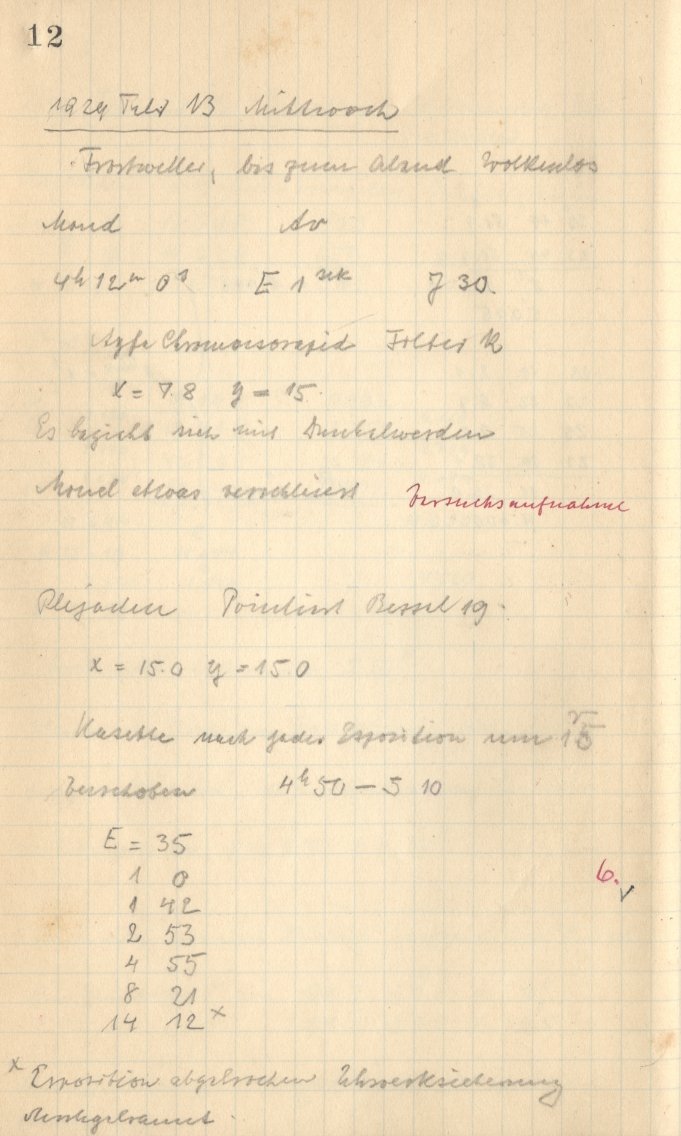 12
1929 Febr 13 Mittwoch
Frostwetter, bis zum Abend Wolkenlos
Mond Av
4h 12m 0s E 1 sek J 30.
Agfa Chromoisorapid Filter K
x = 7.8 y = 15
Es bezieht sich mit Dunkelwerden
Mond etwas verschleiert Versuchsaufnahme
Plejaden Pointiert Bessel 19.
x = 15.0 y = 15.0
Kasette nach jeder Exposition um
Verschoben 4h 50 — 5 10
E = 35
1 0
1 42
2 53
4 55
6.
8 21
14 12 x
x Exposition abgebrochen Uhrwerksicherung
durchgebrannt.